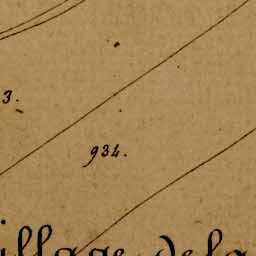 3.
934.
illage dela